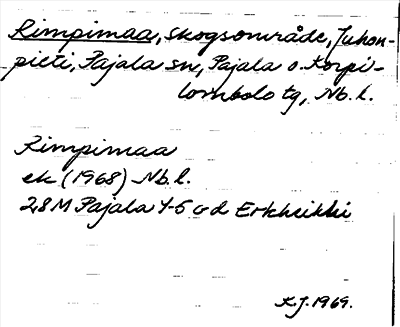 Rimpimaa, skogsområde, Juhon-
pieti, Pajala sn, Pajala o. Korpi-
lombolo tg, Nb. l.
Rimpimaa
ek (1968) Nb. l.
28M Pajala 4-5 c-d Erkheikki
K.J. 1969.